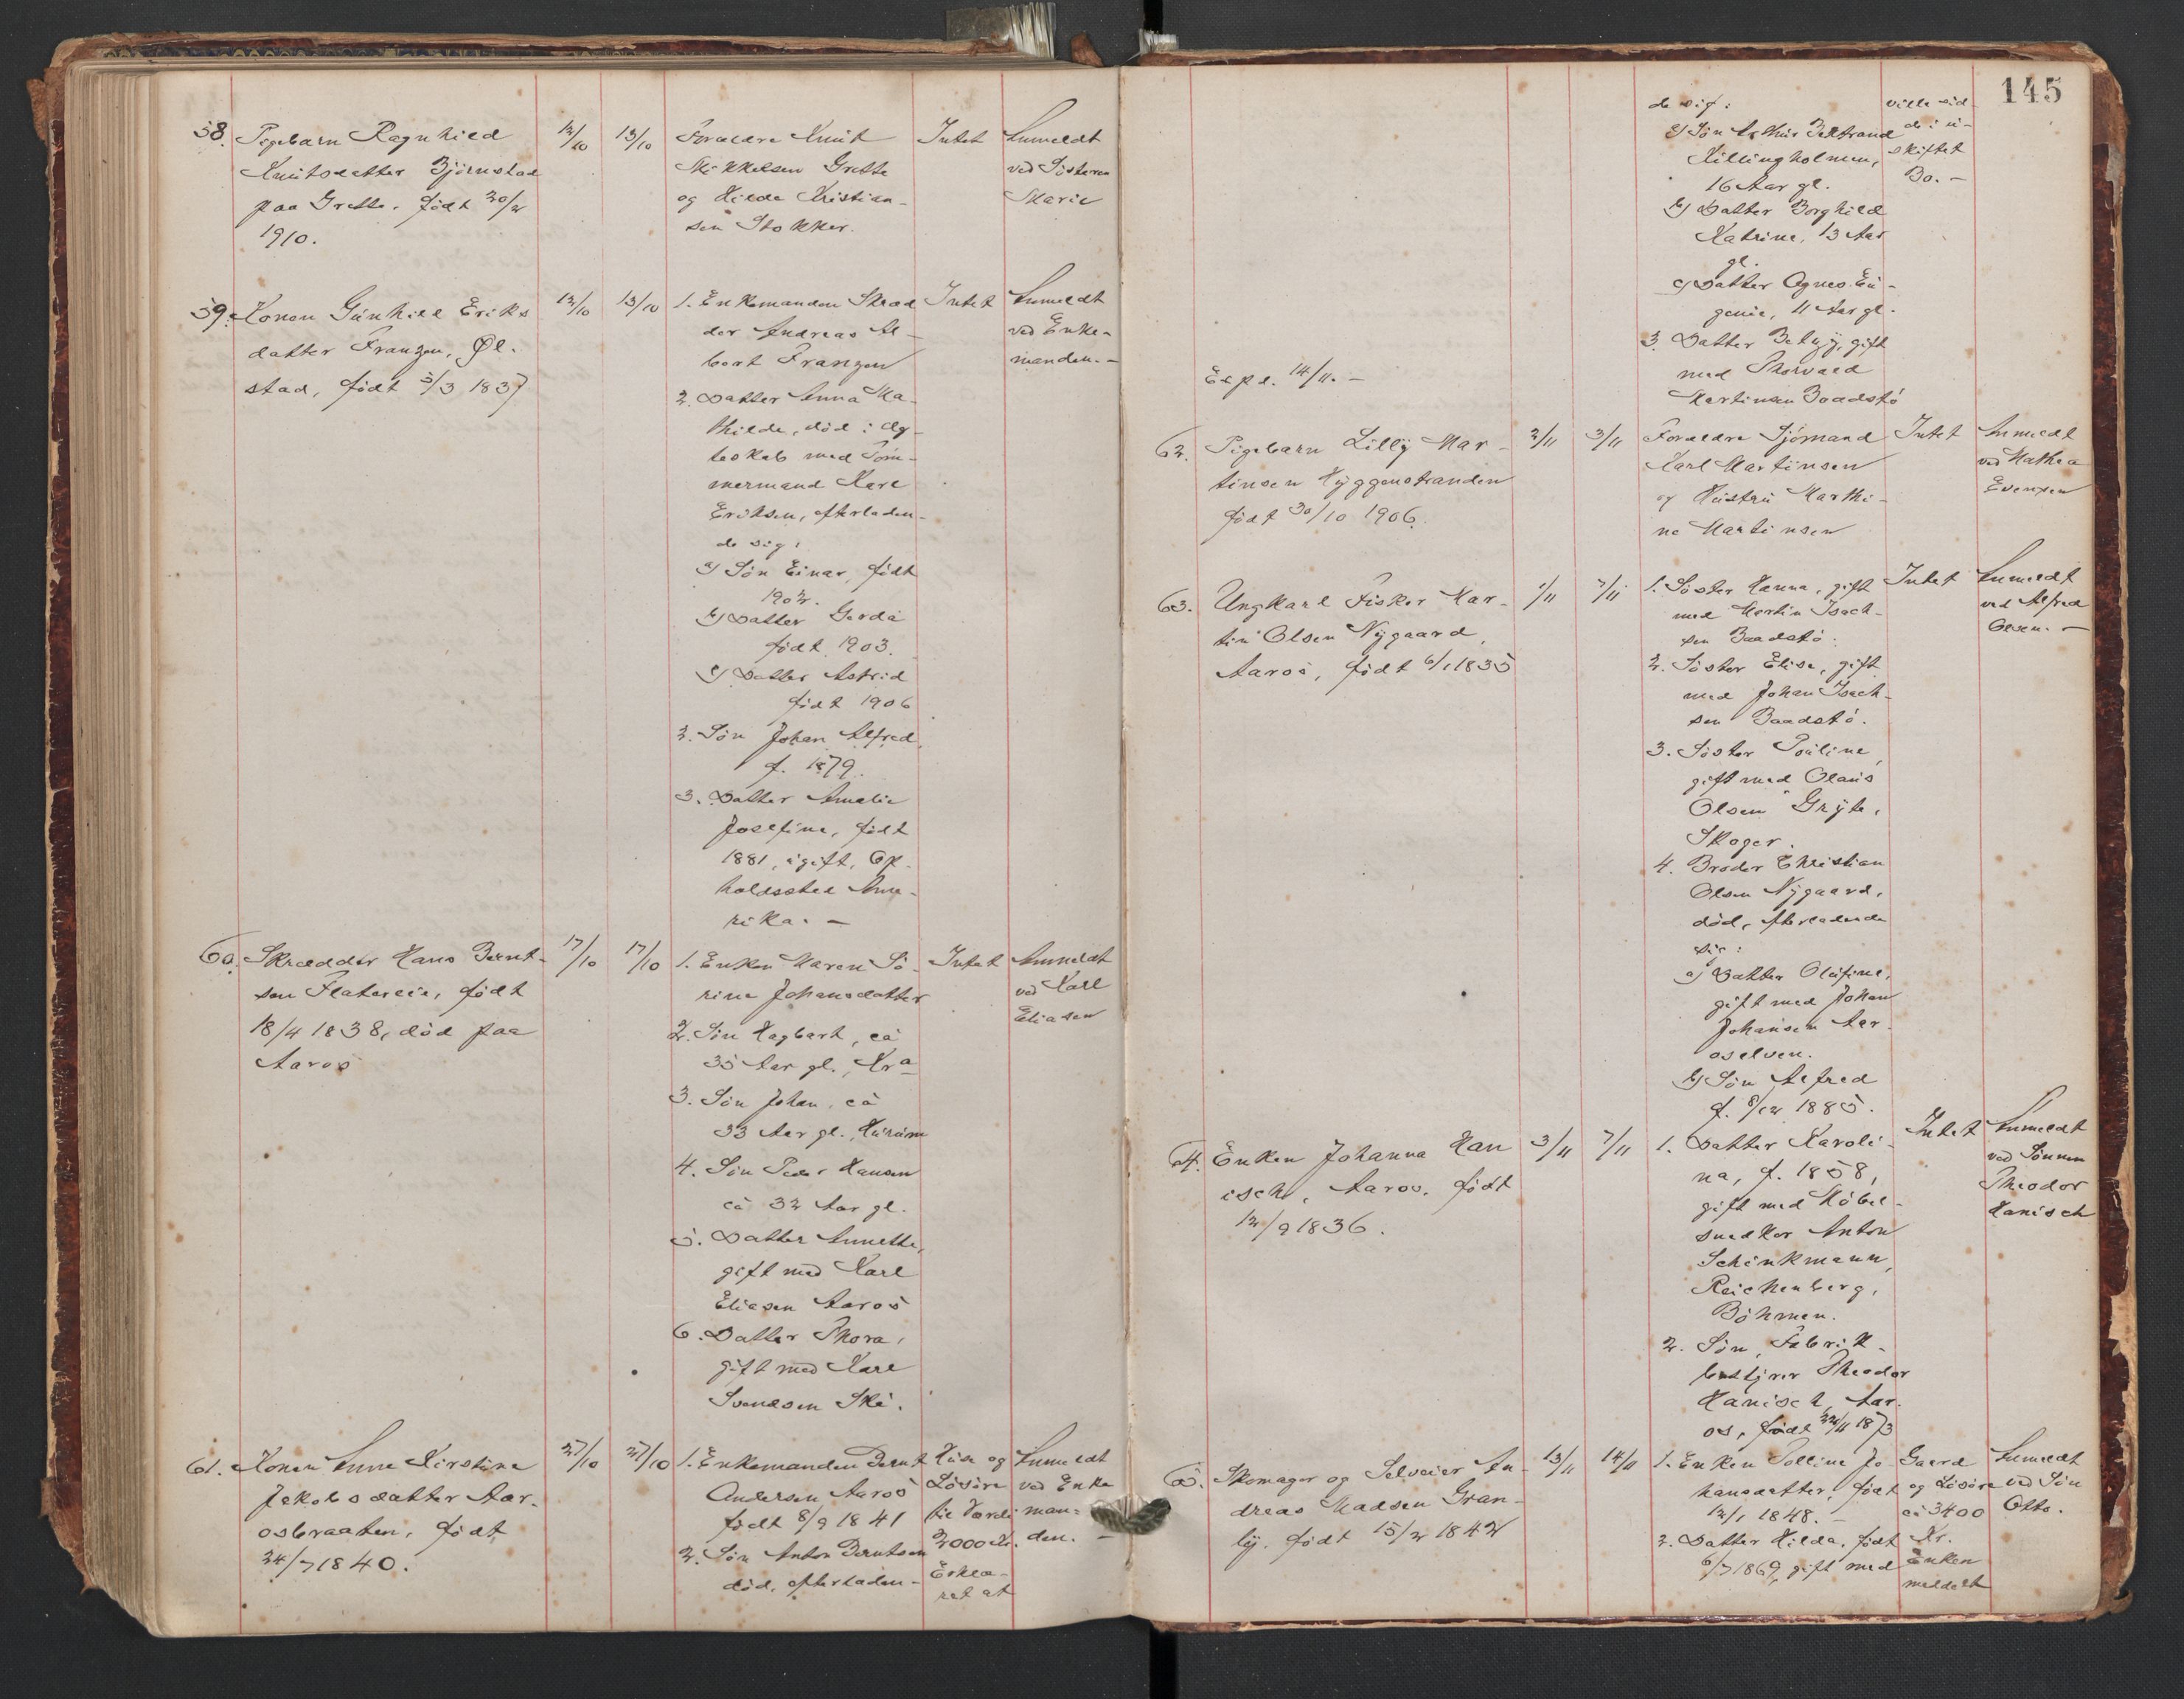 58. Pigebarn Ragnhild
Knutsdatter Björnstad
paa Grette. født 20/2
1910.
12/10
13/10
Forældre Knut
Mikkelsen Grette
og Hilda Kristian-
sen Stokker.
Intet
Anmeldt
ved Søsteren
Marie
59. Konen Gunhild Eriks
datter Franzen, Øl-
stad, født 5/3 1837
12/10
13/10
1. Enkemanden Skræd
der Andreas Al-
bert Franzen
2. Datter Anna Ma-
thilde, død i Æg-
teskab med Töm-
mermand Karl
Eriksen, efterladen-
de sig:
a) Sön Einar, født
1902.
b) Datter Gerda
født 1903.
c) Datter Astrid
født 1906
2. Sön Johan Alfred,
f. 1879.
3. Datter Amalie
Josefine, født
1881, ugift, Op-
holdssted Ame-
rika. —
Intet
Anmeldt
ved Enke-
manden. —
60. Skrædder Hans Bernt-
sen Flatereie, født
18/4 1838, död paa
Aaros
17/10
17/10
1. Enken Maren Sö-
rine Johansdatter
2. Sön Hagbart, ca
35 Aar gl., Kra
3. Sön Johan, ca
33 Aar gl., Hurum
4. Sön Peder Hansen
ca 32 Aar gl.
5. Datter Annette,
gift med Karl
Eliasen Aaros
6. Datter Thora,
gift med Karl
Svendsen Ski.
Intet
Anmeldt
ved Karl
Eliasen
61. Konen Anne Kirstine
Jakobsdatter Aar-
osbraaten, født
24/7 1840.
27/10
27/10
1. Enkemanden Bernt
Andersen Aaros
født 8/9 1841
2. Sön Anton Berntsen
död, efterladen-
Hus og
Lösöre
til Værdi
2000 Kr.
Erklæ-
ret at
Anmeldt
ved Enke
man-
den. —
145
de sig:
a) Sön Arthur Beltrand
Killingholmen,
16 Aar gl.
b) Datter Borghild
Katrine, 13 Aar
gl.
c) Datter Agnes Eu-
genie, 11 Aar gl.
3. Datter Betzy, gift
med Thorvald
Martinsen Baadstö
ville sid-
de i u-
skiftet
Bo. —
Exp d. 14/11. —
62. Pigebarn Lilly Mar-
tinsen Hyggenstranden
født 30/10 1906.
2/11
3/11
Forældre Sjömand
Karl Martinsen
og Hustru Marthi-
ne Martinsen
Intet
Anmeldt
ved Mathea
Evensen
63. Ungkarl Fisker Mar-
tin Olsen Nygaard,
Aaros, født 6/1 1835
1/11
7/11
1. Söster Hanna, gift
med Martin Isach-
sen Baadstö.
2. Söster Elise, gift
med Johan Isach-
sen Baadstö.
3. Söster Pauline,
gift med Olaus
Olsen Gryte,
Skoger.
4. Broder Christian
Olsen Nygaard,
död, efterladende
sig:
a) Datter Olufine,
gift med Johan
Johansen Aar-
oselven.
b) Sön Alfred
f. 8/12 1885.
Intet
Anmeldt
ved Alfred
Olsen. —
64. Enken Johanna Han
isch, Aaros, født
12/9 1836.
3/11
7/11
1. Datter Karoli-
na, f. 1858,
gift med Möbel-
snedker Anton
Schinkmann,
Reichenberg,
Böhmen.
2. Sön, Fabrik-
bestyrer Theodor
Hanisch, Aar-
os, født 22/11 1873
Intet
Anmeldt
ved Sönnen
Theodor
Hanisch
65. Skomager og Selveier An-
dreas Madsen Gran-
ly, født 15/2 1842
13/11
14/11
1. Enken Polline Jo-
hansdatter, født
12/1 1848. —
2. Datter Hilda, født
6/7 1869, gift med
Gaard
og Lösöre
ca 3400
Kr.
Enken
meddelt
Anmeldt
ved Sön
Otto.